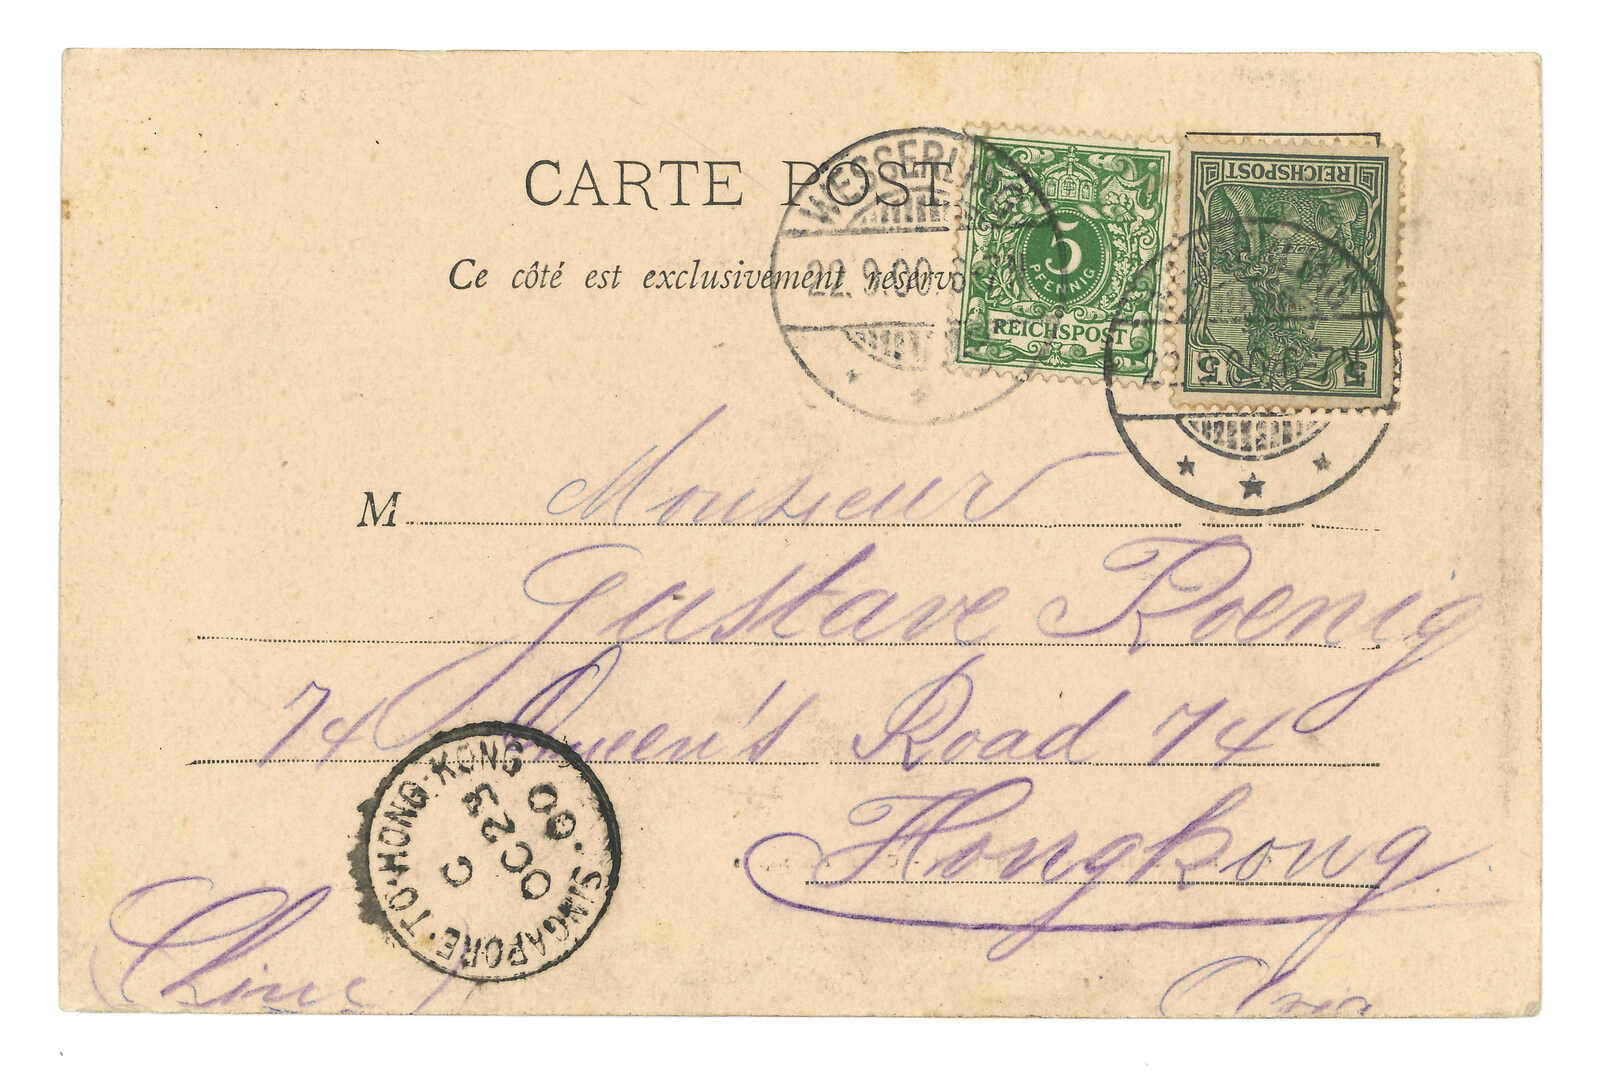 CARTE POST
Ce côté est exclusivement reserv
WESSERLING
22.9.00.6-7N
5
PFENNIG
REICHSPOST
REICHSPOST
5 5
M Monsieur
Gustave Koenig
74 Queen's Road 74
Hongkong
(Chine)
SINGAPORE·TO·HONG·KONG
C
OC 23
00